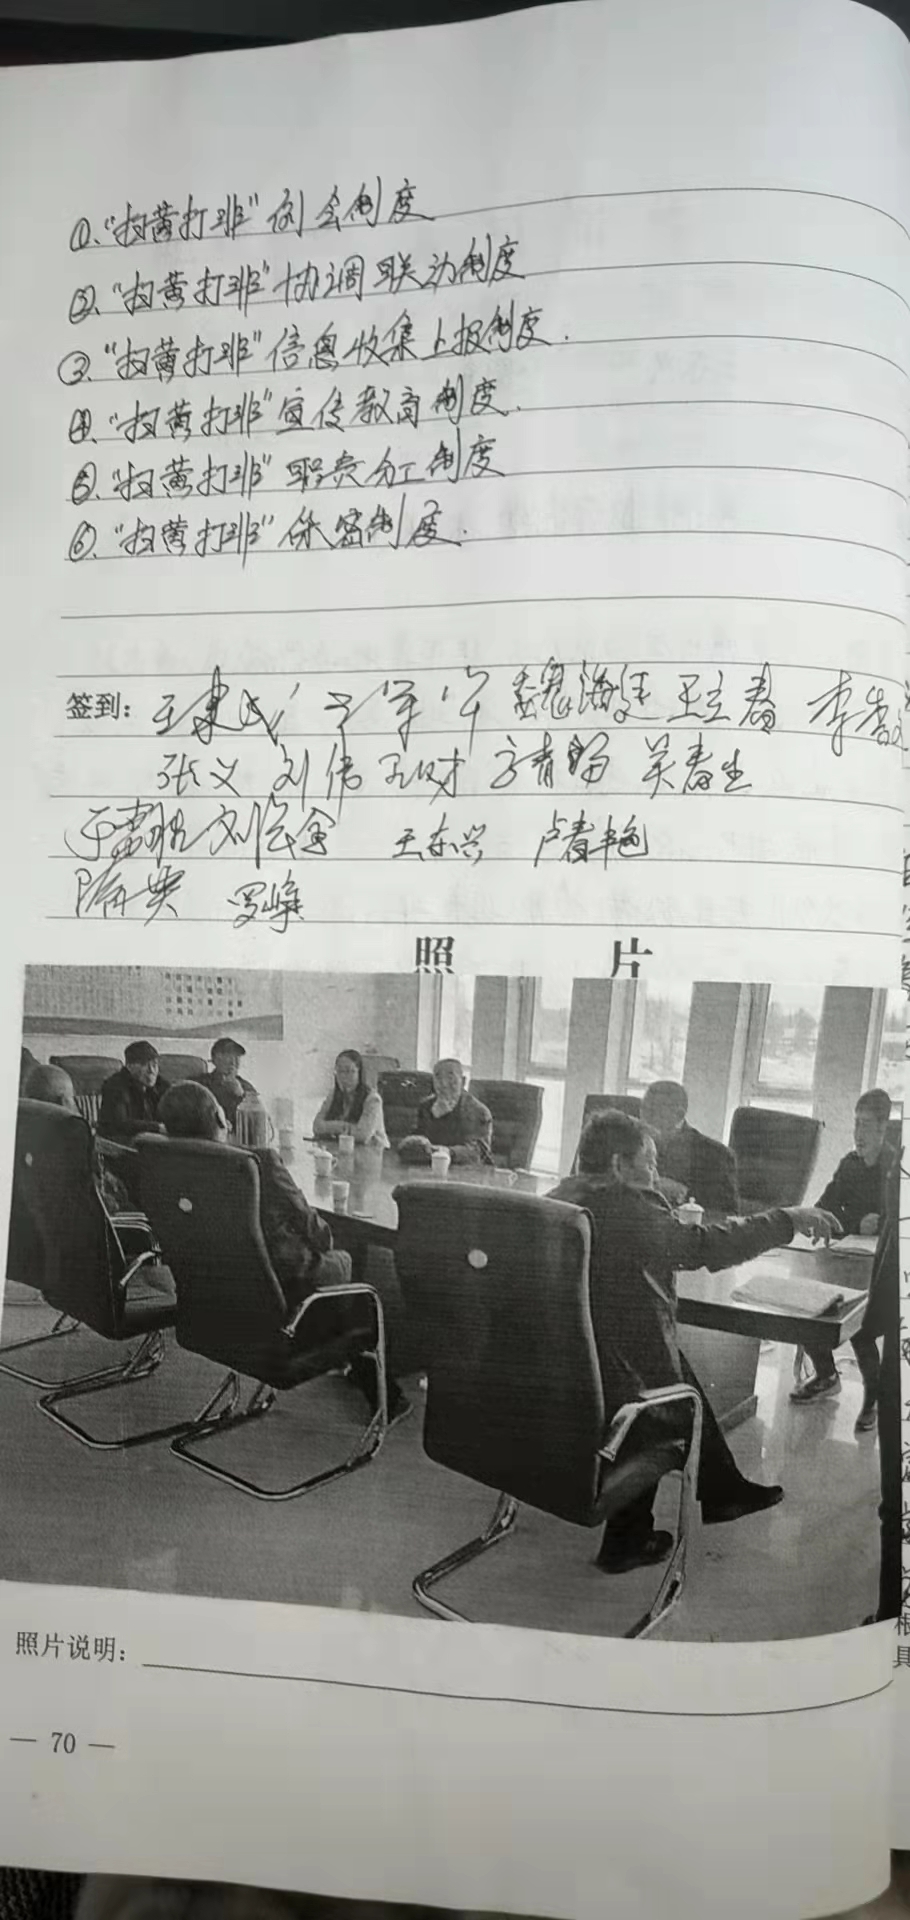 ①、“扫黄打非”例会制度
②、“扫黄打非”协调联动制度
③、“扫黄打非”信息收集上报制度.
④、“扫黄打非”宣传教育制度.
⑤、“扫黄打非”职责分工制度
⑥、“扫黄打非”保密制度.
签到: 魏海廷 王立春
张义 刘伟 吴春生
王东兴 卢春艳
罗峰
照 片
照片说明:
— 70 —